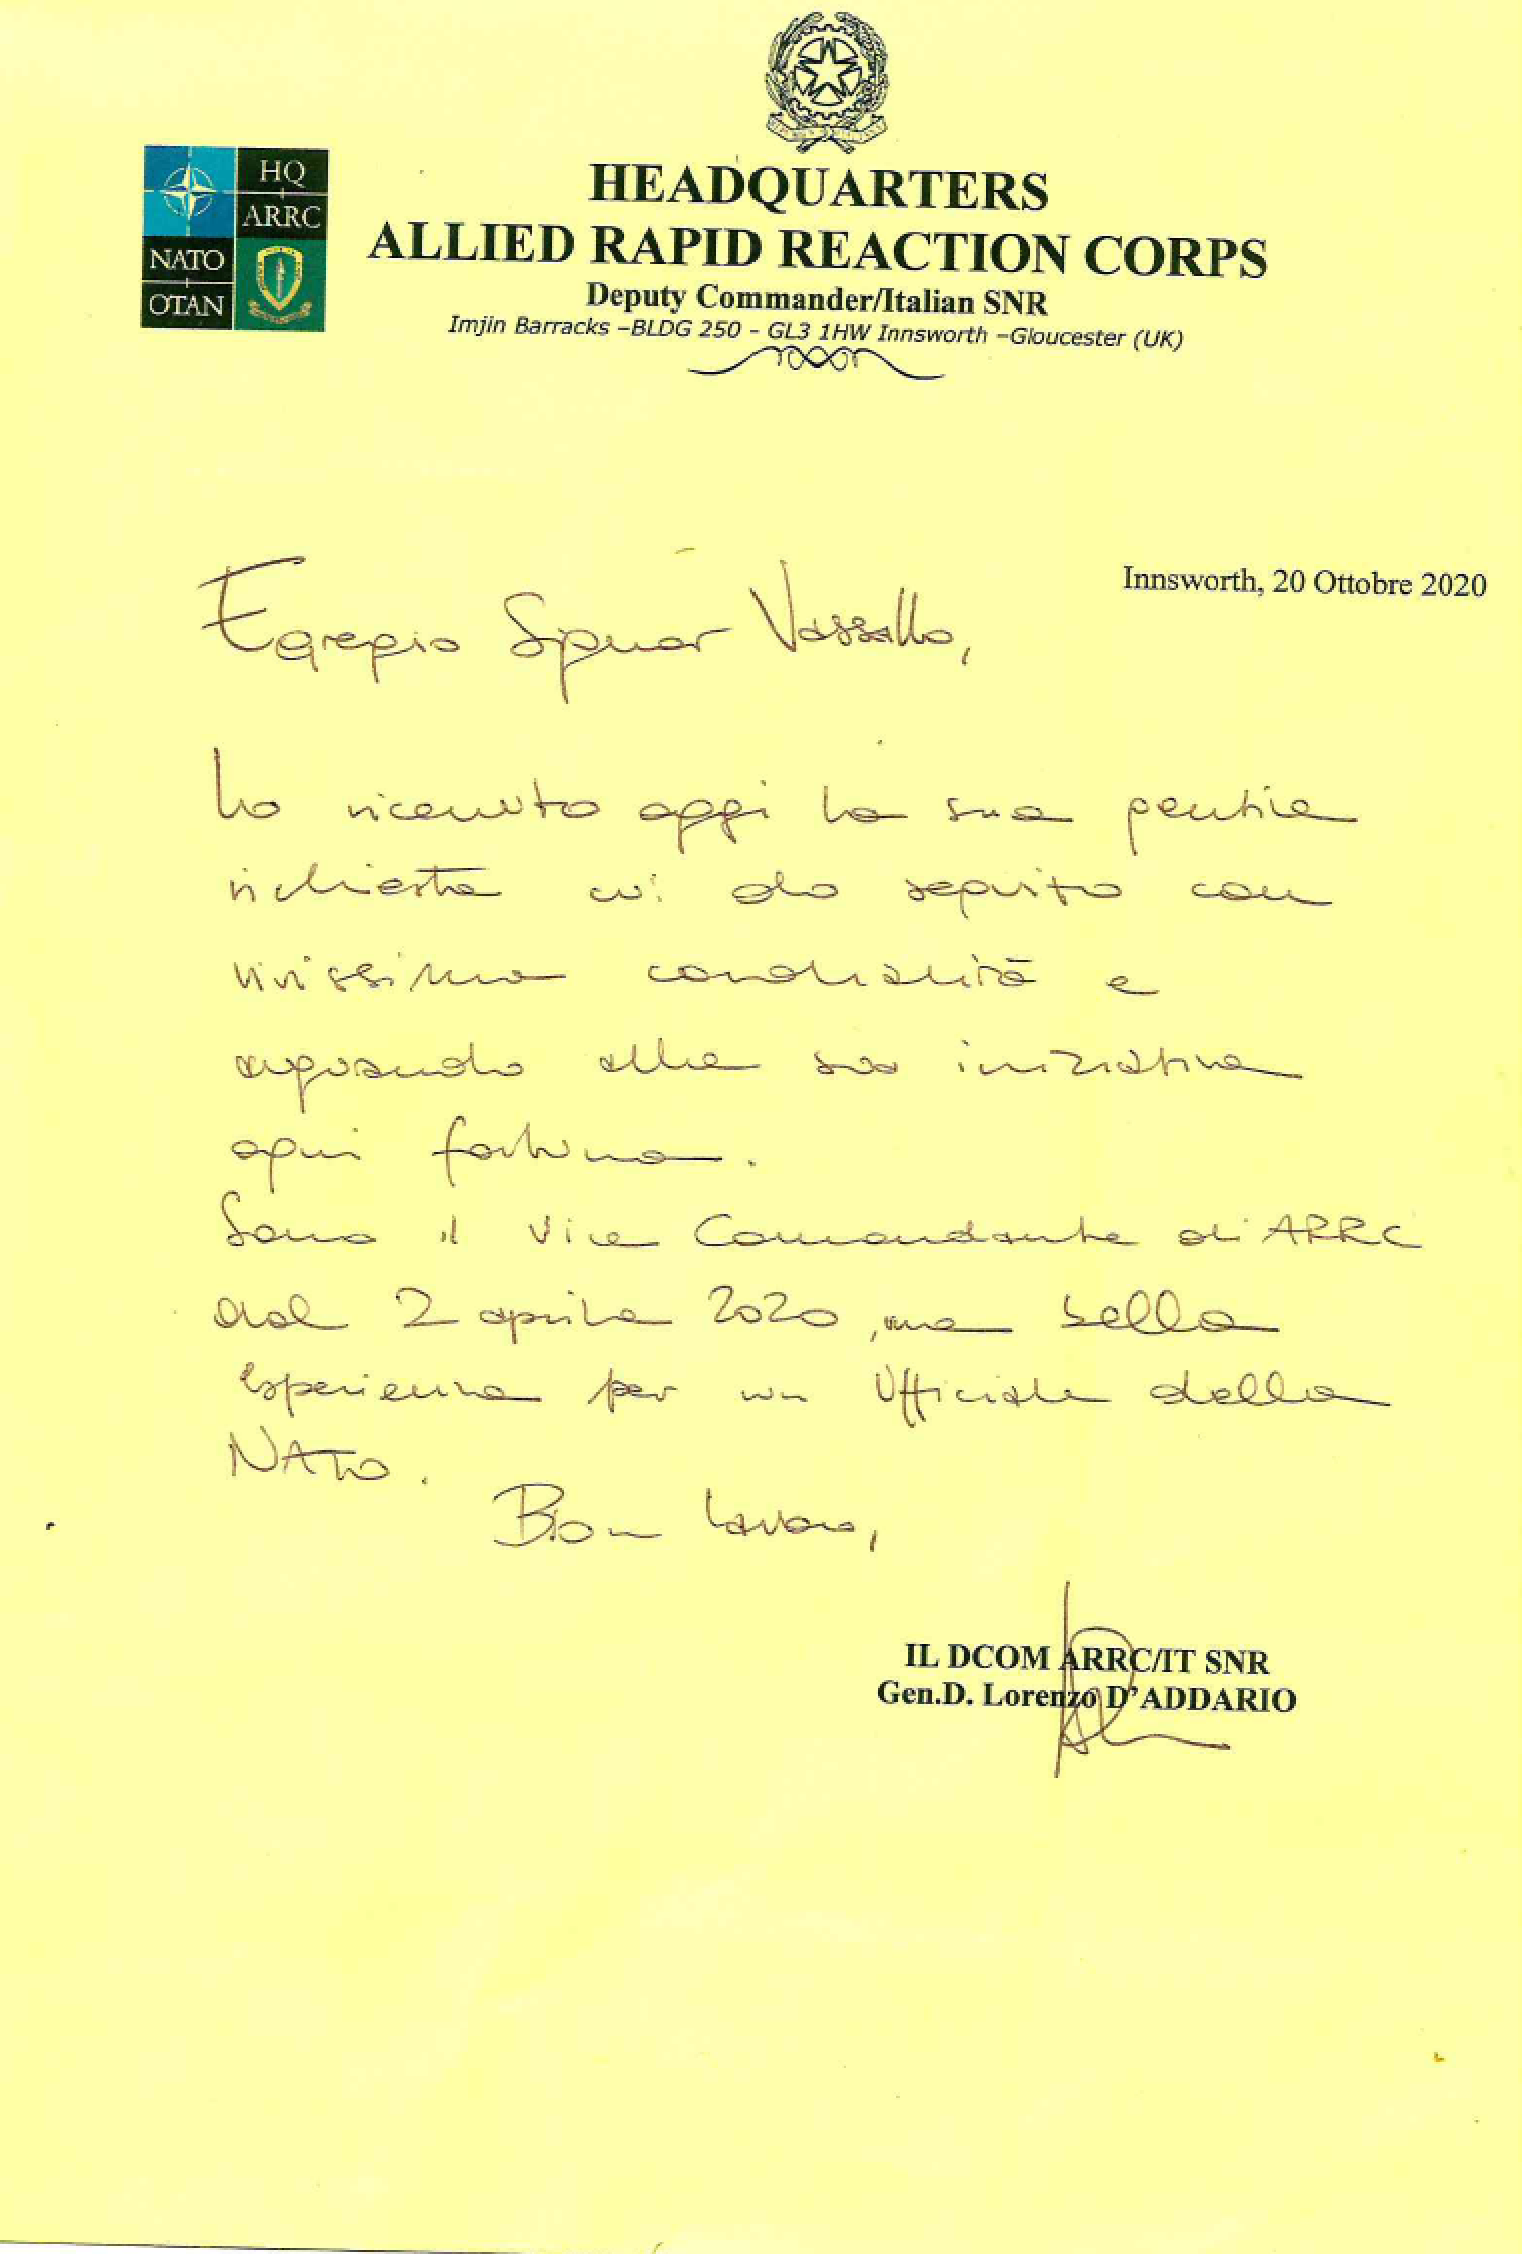 HQ
ARRC
NATO
OTAN
HEADQUARTERS
ALLIED RAPID REACTION CORPS
Deputy Commander/Italian SNR
Imjin Barracks –BLDG 250 - GL3 1HW Innsworth –Gloucester (UK)
Innsworth, 20 Ottobre 2020
Egregio Signor Vassallo,
ho ricevuto oggi la sua gentile
richiesta cui do seguito con
vivissima cordialità e
augurando alla sua iniziativa
ogni fortuna.
Sono il Vice Comandante di ARRC
dal 2 aprile 2020, una bella
esperienza per un Ufficiale della
NATO.
Buon lavoro,
IL DCOM ARRC/IT SNR
Gen.D. Lorenzo D'ADDARIO